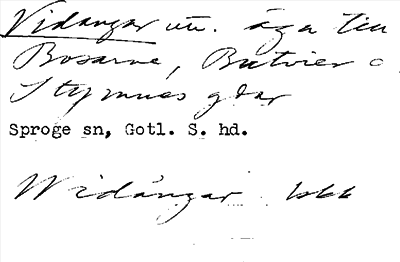 Vidängar utr. äga till
Bosarve, Butvier o
Stymnes gdar
Sproge sn, Gotl. S. hd.
Widängar